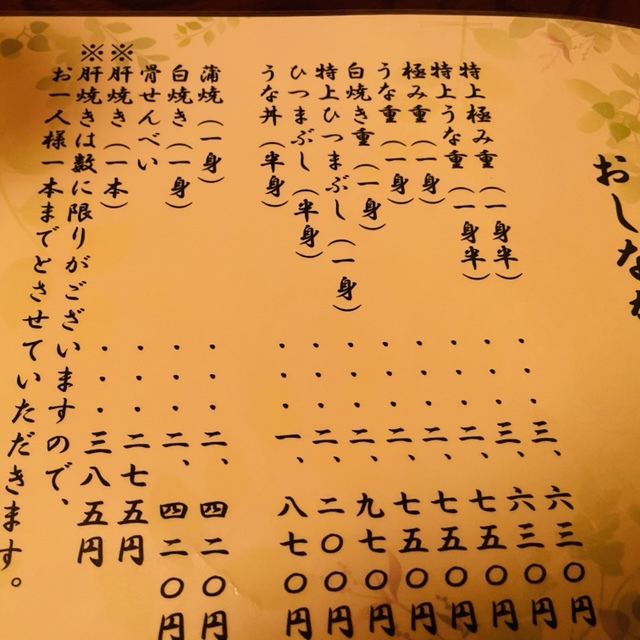 おしな
特上極み重（一身半）・・・三、六三〇円
特上うな重（一身半）・・・三、六三〇円
極み重（一身）・・・二、七五〇円
うな重（一身）・・・二、七五〇円
白焼き重（一身）・・・二、七五〇円
特上ひつまぶし（一身）・・・二、九七〇円
ひつまぶし（半身）・・・二、二〇〇円
うな丼（半身）・・・一、八七〇円
蒲焼（一身）・・・二、四二〇円
白焼き（一身）・・・二、四二〇円
骨せんべい・・・二七五円
※肝焼き（一本）・・・三八五円
※肝焼きは数に限りがございますので、
お一人様一本までとさせていただきます。